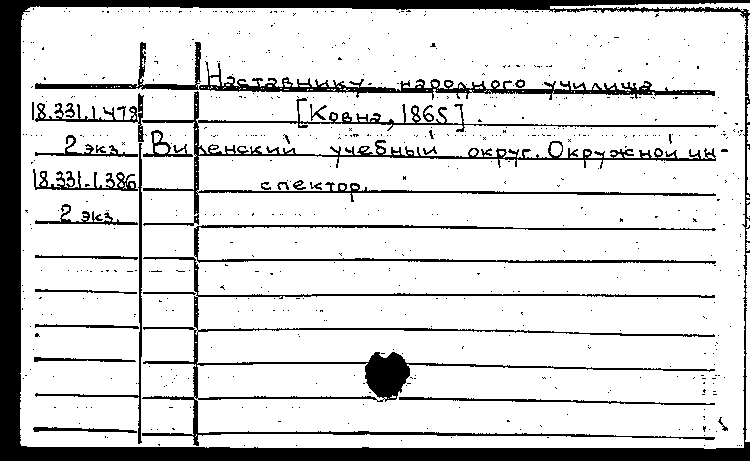 Наставнику народного училища.
18.331.1.478 [Ковна, 1865].
2 экз. Виленский учебный округ. Окружной ин-
18.331.1.386 спектор.
2 экз.